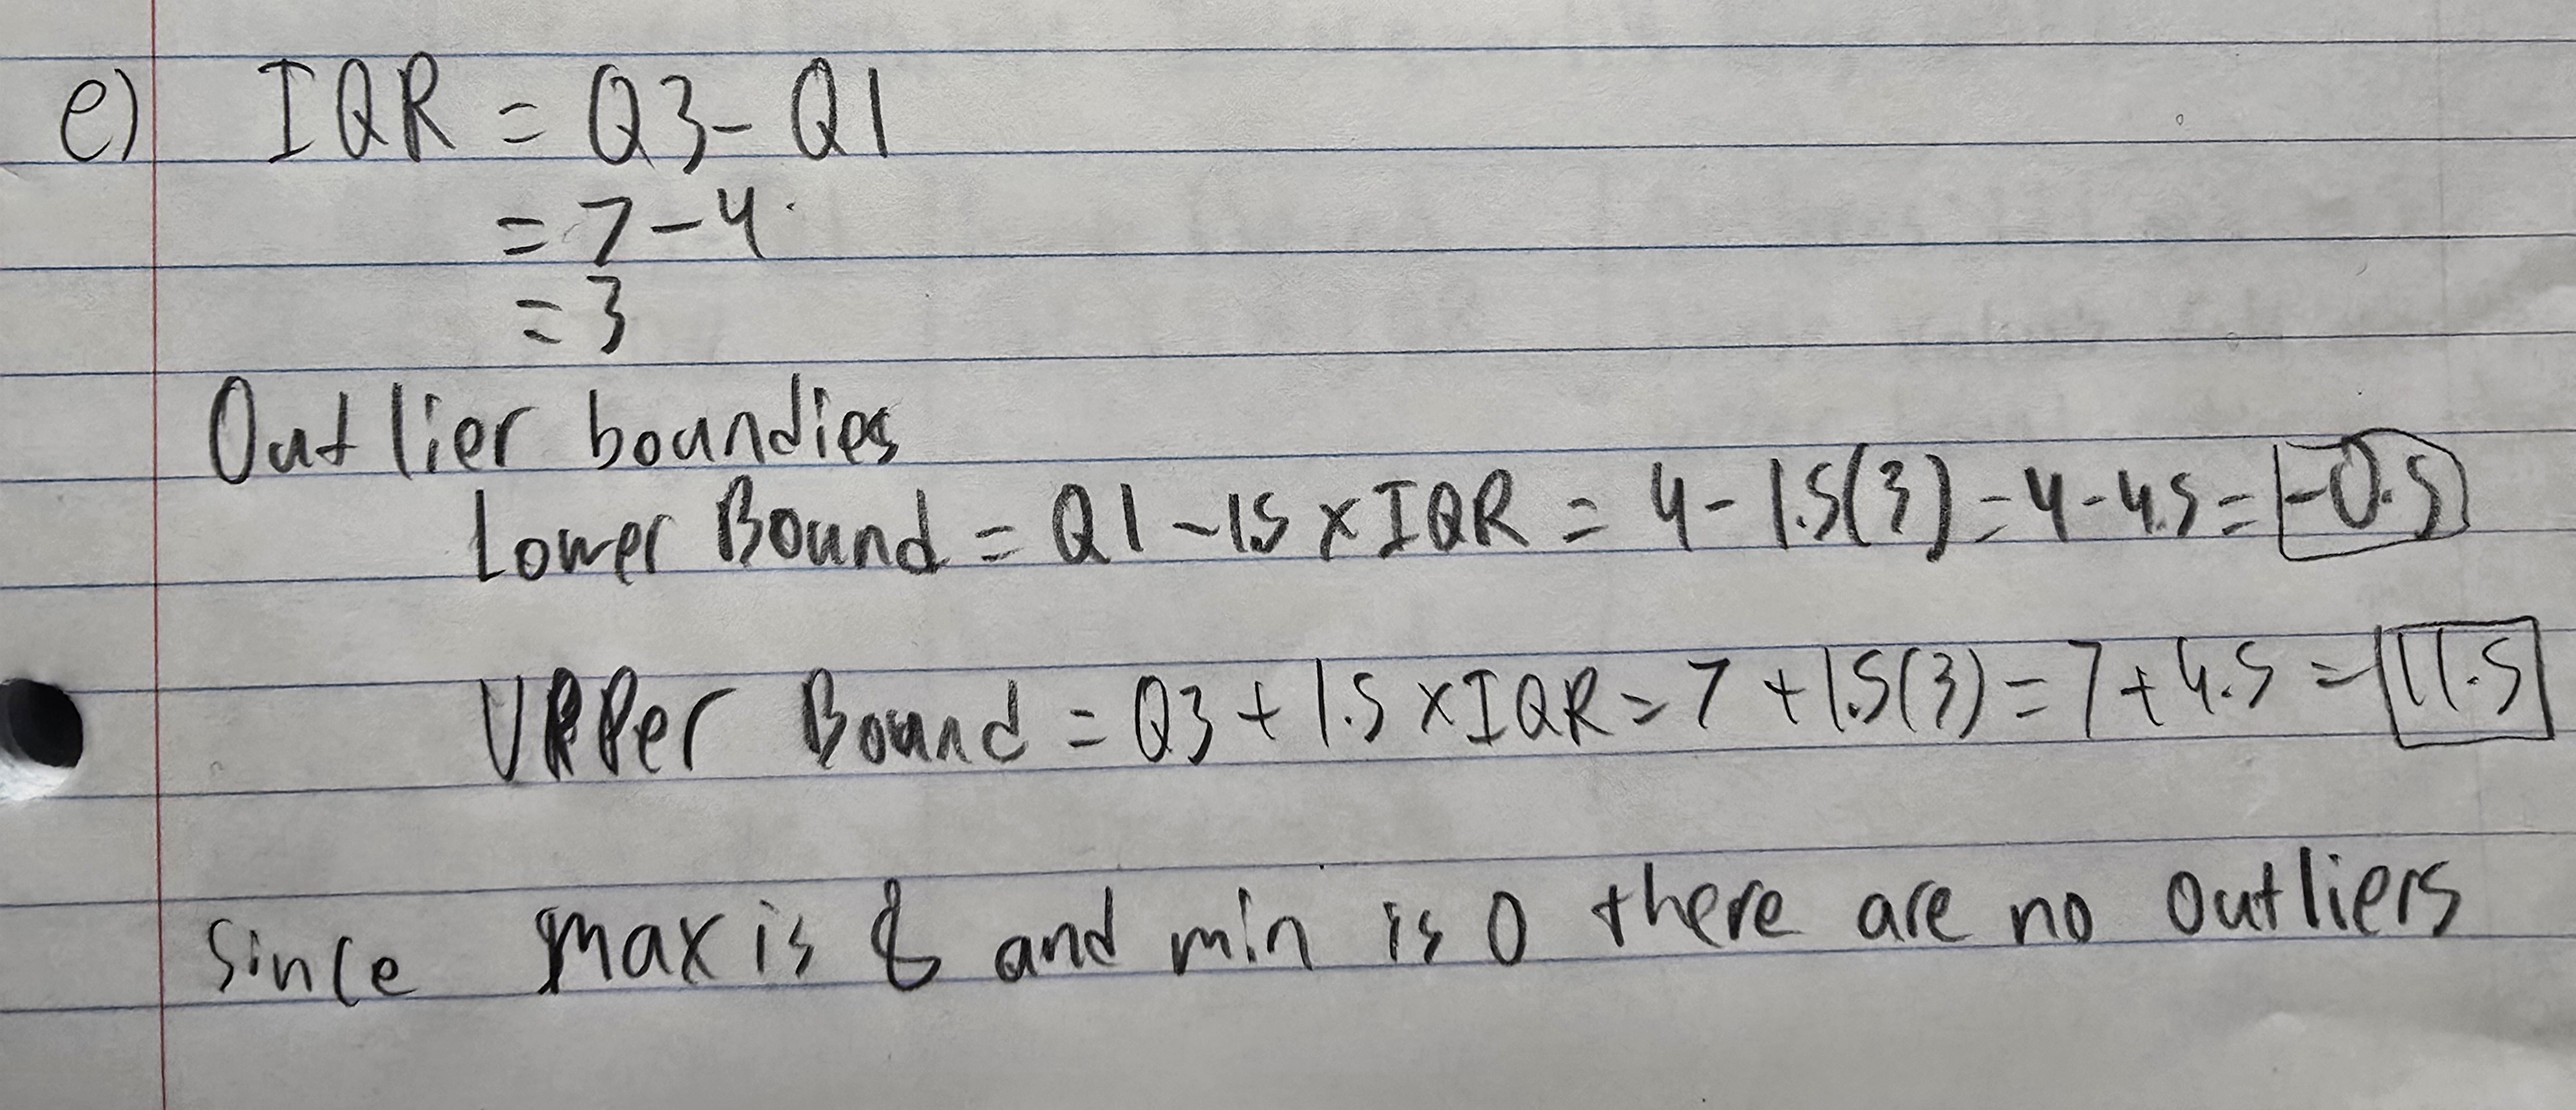 e) IQR = Q3 - Q1
= 7 - 4
= 3
Outlier boundies
Lower Bound = Q1 - 1.5 x IQR = 4 - 1.5(3) = 4 - 4.5 = -0.5
Upper Bound = Q3 + 1.5 x IQR = 7 + 1.5(3) = 7 + 4.5 = 11.5
Since max is 8 and min is 0 there are no outliers